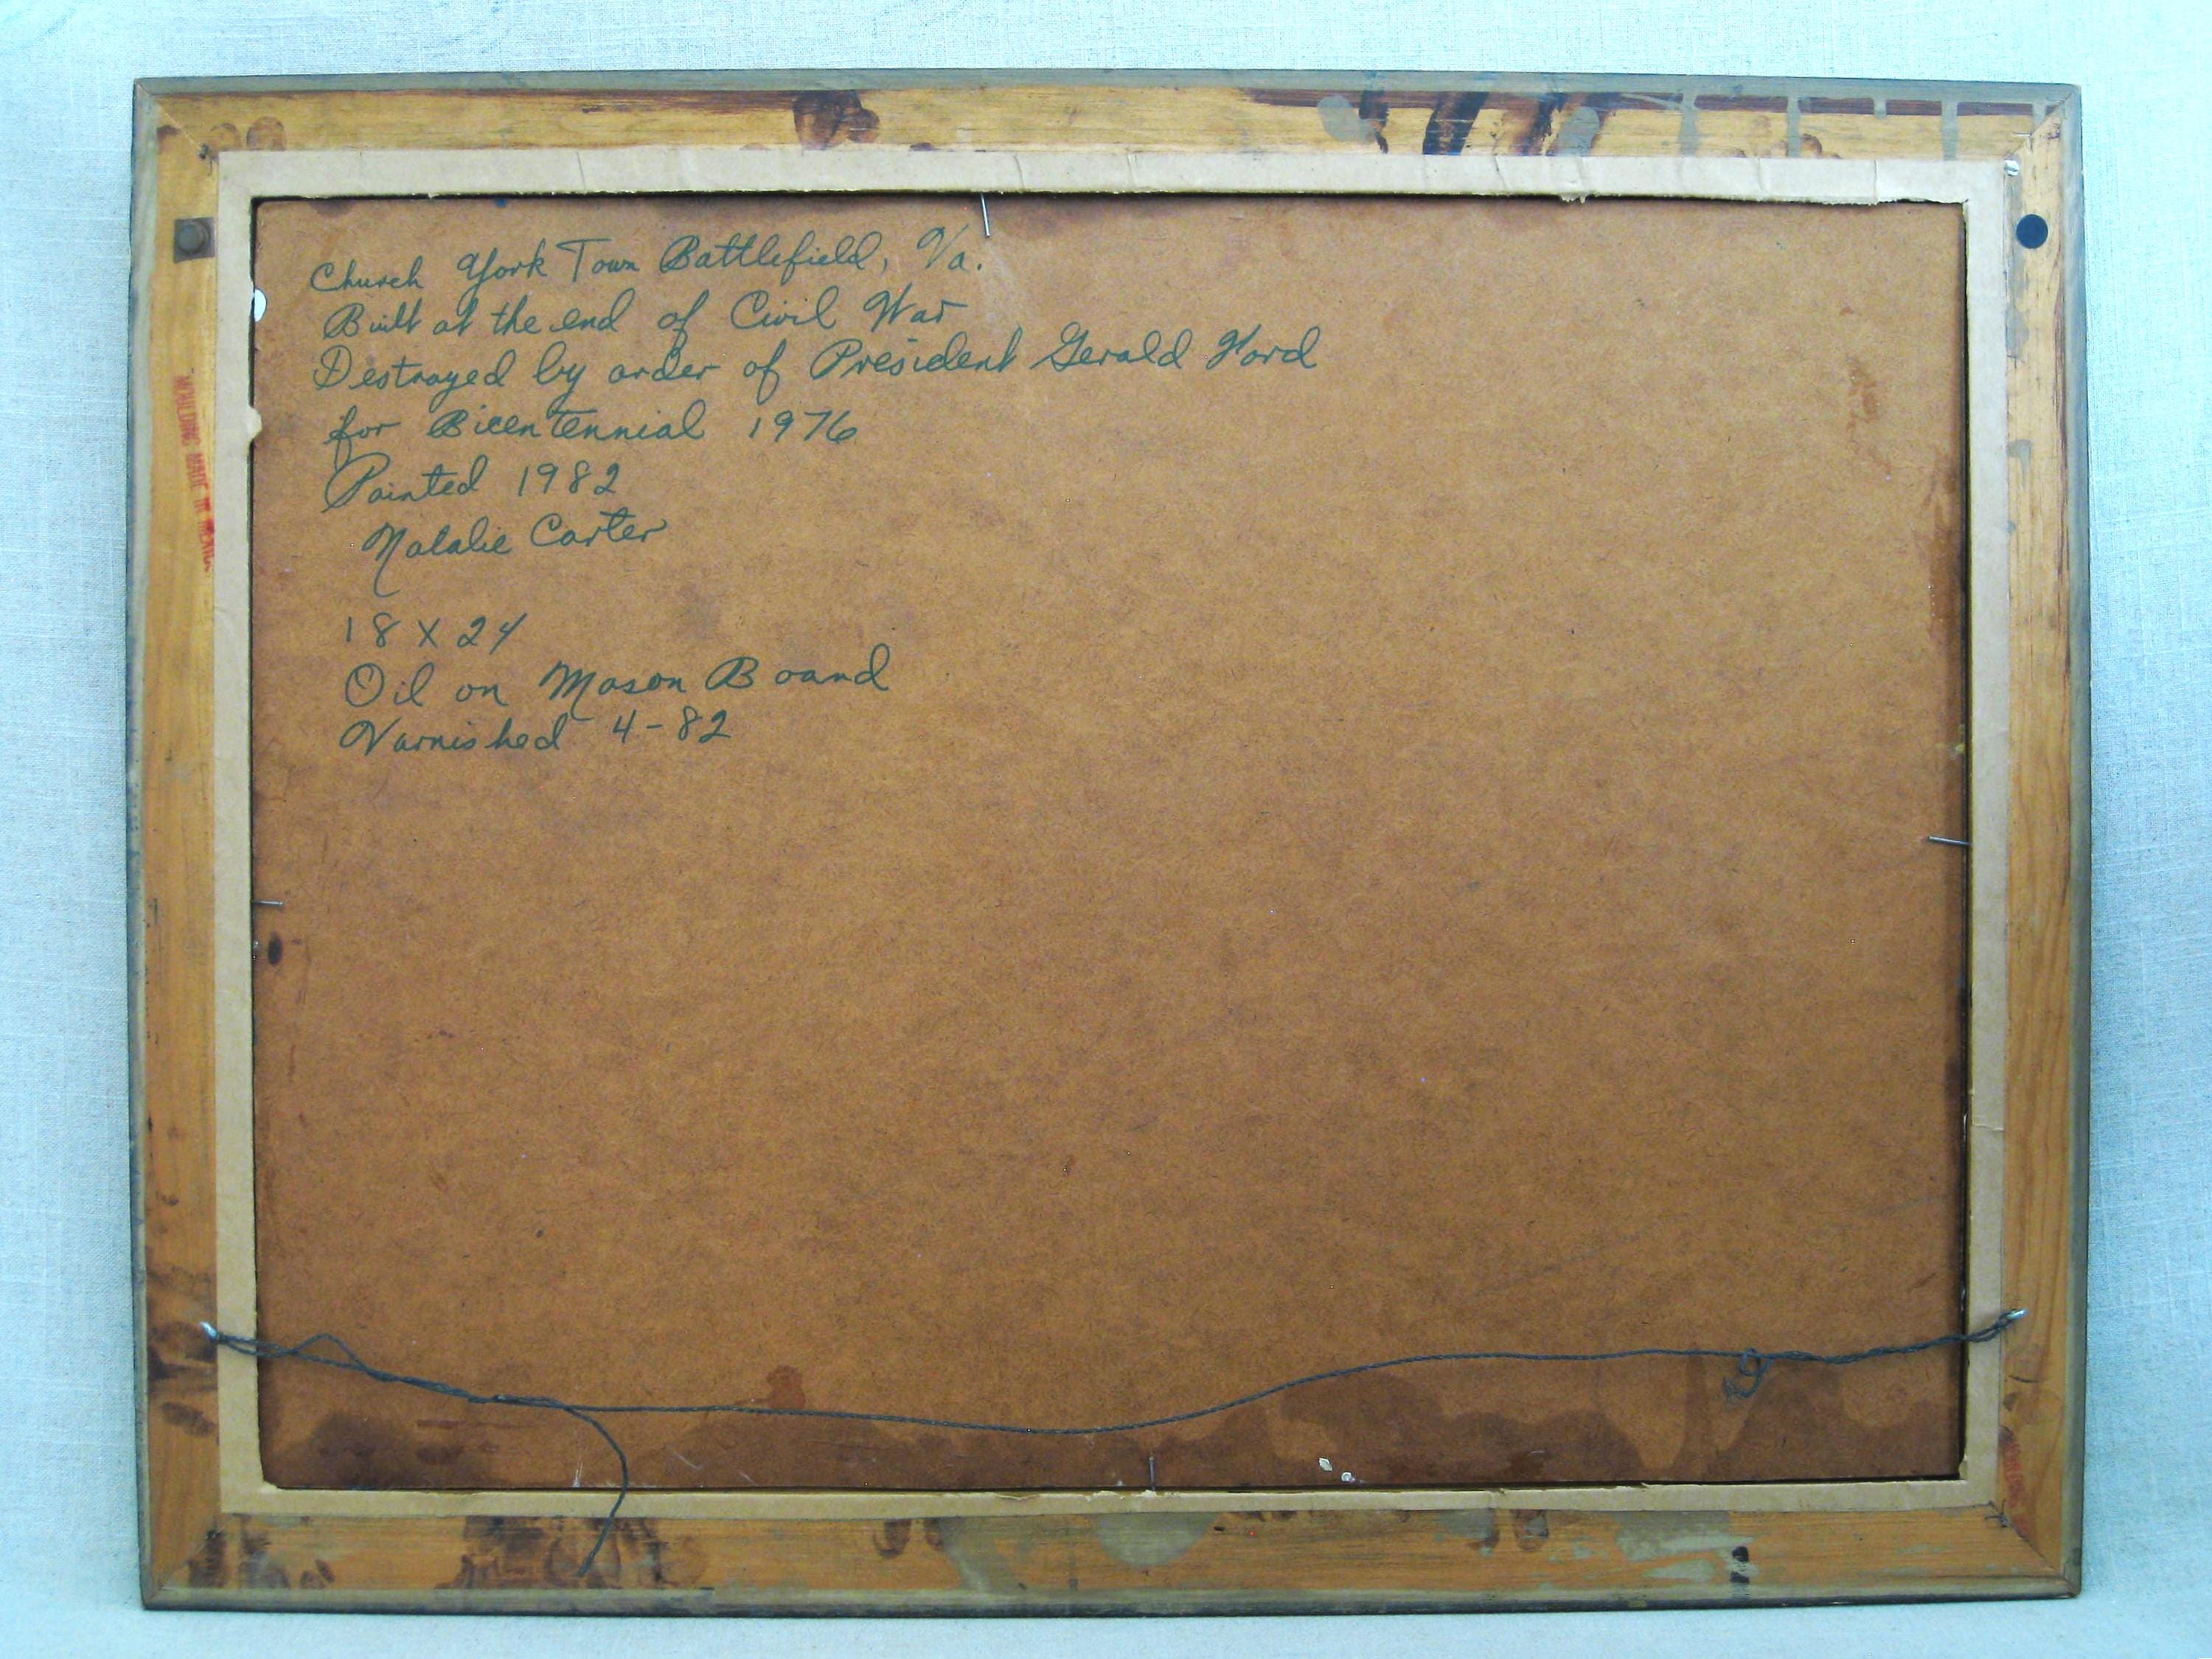 Church York Town Battlefield, Va.
Built at the end of Civil War
Destroyed by order of President Gerald Ford
for Bicentennial 1976
Painted 1982
Natalie Carter
18 X 24
Oil on Mason Board
Varnished 4-82
MADE IN MEXICO